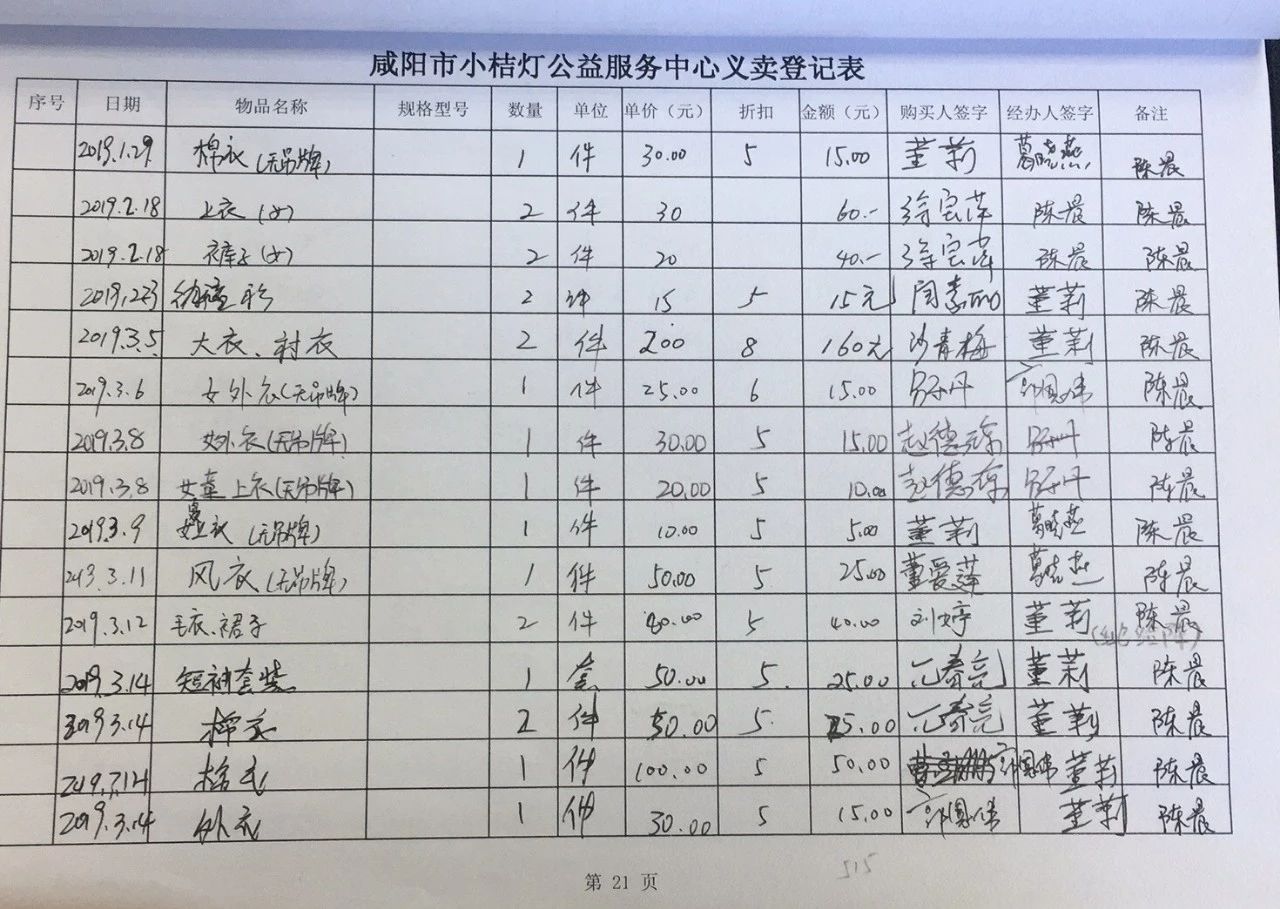 咸阳市小桔灯公益服务中心义卖登记表
序号 日期 物品名称 规格型号 数量 单位 单价（元） 折扣 金额（元） 购买人签字 经办人签字 备注
2019.1.29 棉衣（无吊牌） 1 件 30.00 5 15.00 董莉 葛晓燕 陈晨
2019.2.18 上衣（女） 2 件 30 60.- 徐宝萍 陈晨 陈晨
2019.2.18 裤子（女） 2 件 20 40.- 徐宝萍 陈晨 陈晨
2019.2.23 2 件 15 5 15元 董莉 陈晨
2019.3.5 大衣、衬衣 2 件 200 8 160元 沙青梅 董莉 陈晨
2019.3.6 女外衣（无吊牌） 1 件 25.00 6 15.00 陈晨
2019.3.8 女外衣（无吊牌） 1 件 30.00 5 15.00 赵德琼 陈晨
2019.3.8 女童上衣（无吊牌） 1 件 20.00 5 10.00 赵德琼 陈晨
2019.3.9 （无吊牌） 1 件 10.00 5 5.00 董莉 葛晓燕 陈晨
2019.3.11 风衣（无吊牌） 1 件 50.00 5 25.00 董爱莲 葛晓燕 陈晨
2019.3.12 毛衣、裙子 2 件 80.00 5 40.00 刘婷 董莉 陈晨
2019.3.14 短袖套装 1 套 50.00 5 25.00 董莉 陈晨
2019.3.14 棉衣 2 件 50.00 5 25.00 董莉 陈晨
2019.3.14 棉衣 1 件 100.00 5 50.00 董莉 陈晨
2019.3.14 外衣 1 件 30.00 5 15.00 董莉 陈晨
第 21 页
515